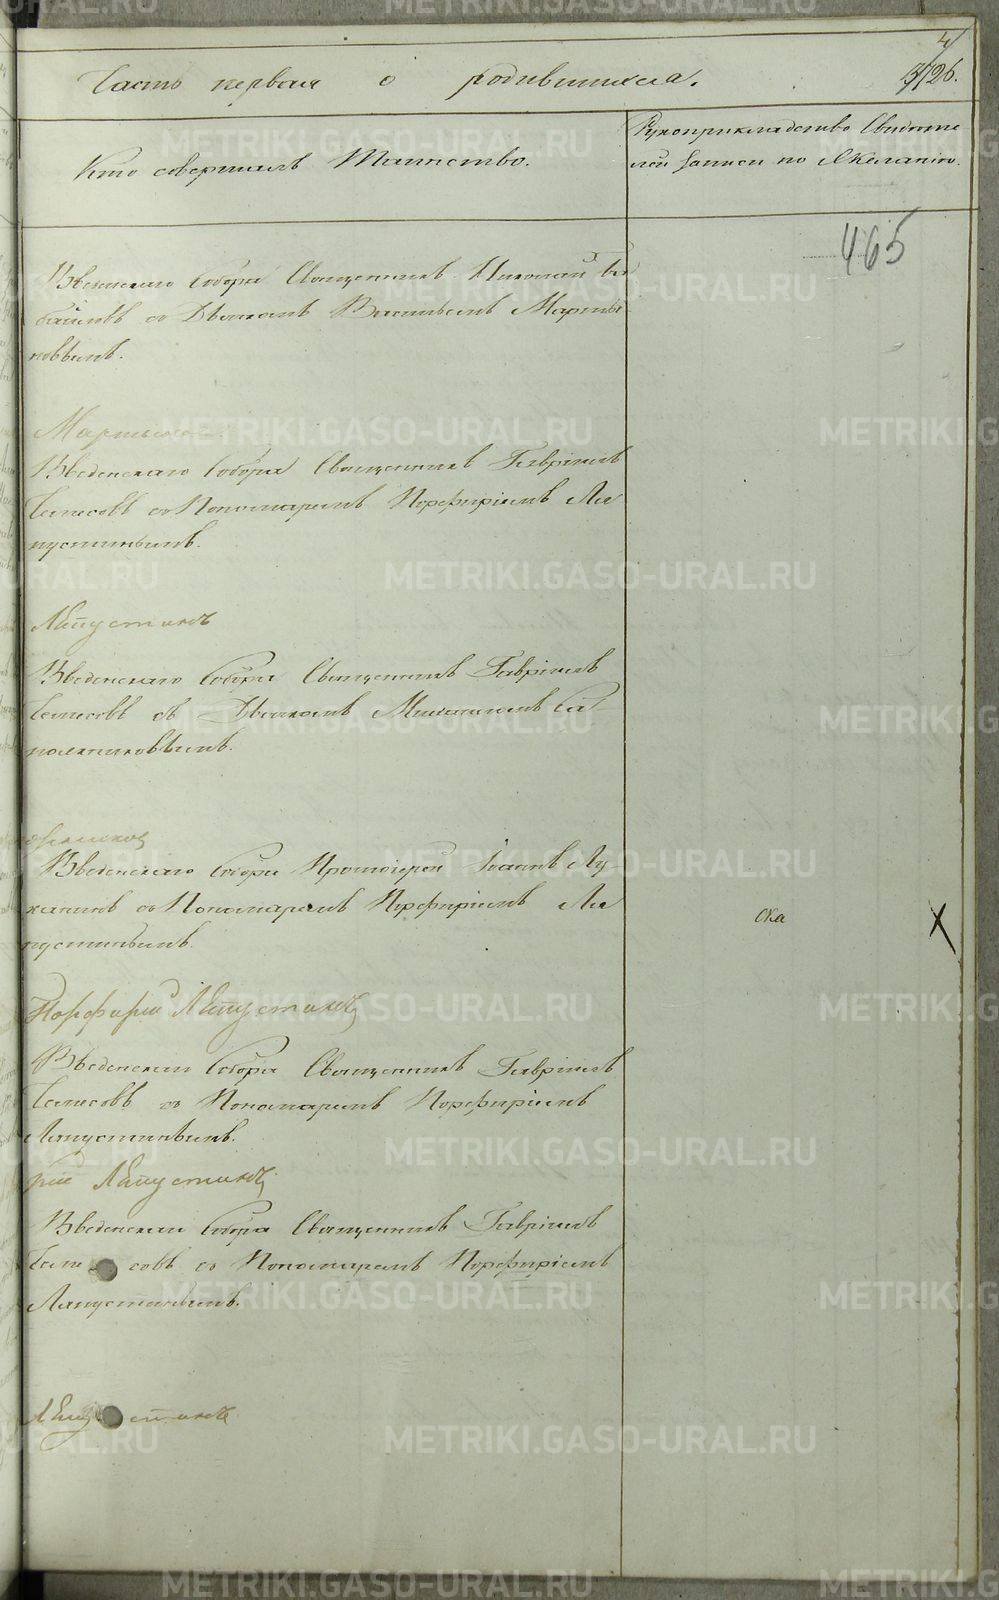 4
3/26.
Часть первая о родившихся.
Кто совершалъ Таинство.
Рукоприкладство Свидѣте
лей записи по Желанію.
465
Введенскаго Собора Священникъ Николай
съ Діакономъ Васильемъ Марты
новымъ.
Мартынов
Введенскаго Собора Священникъ Гавріилъ
съ Пономаремъ Порфиріемъ Ла
пустинымъ.
Лапустинъ
Введенскаго Собора Священникъ Гавріилъ
съ Діакономъ Михаиломъ Са
пожниковымъ.
Введенскаго Собора Протоіерей Іоаннъ Лу
канинъ съ Пономаремъ Порфиріемъ Ла
пустинымъ.
Порфирий Лапустинъ
Введенскаго Собора Священникъ Гавріилъ
съ Пономаремъ Порфиріемъ
Лапустинымъ.
рий Лапустинъ
Введенскаго Собора Священникъ Гавріилъ
съ Пономаремъ Порфиріемъ
Лапустинымъ.
Лапустинъ
METRIKI.GASO-URAL.RU